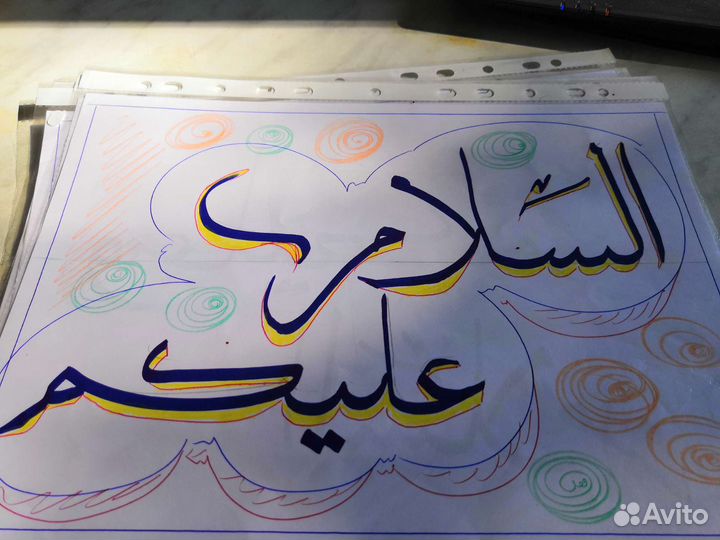 السلام
عليكم
Avito